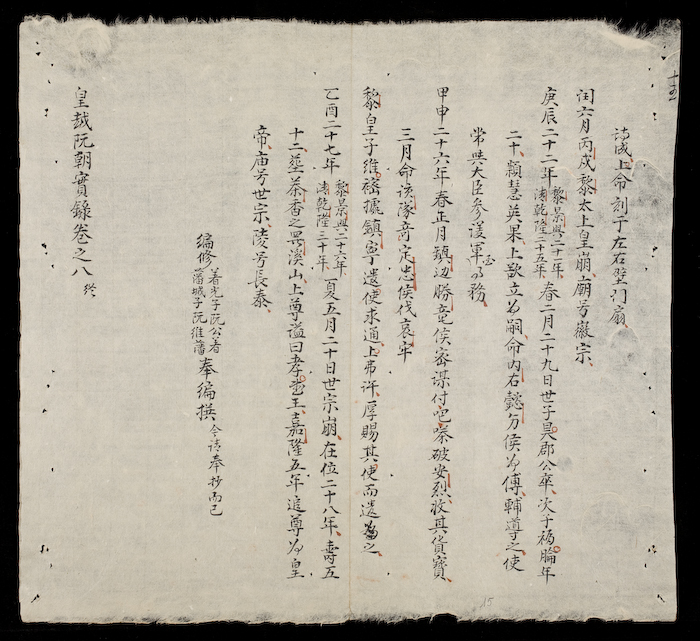 十五
詩成上命刻于左右壁門扇
閏六月丙戌黎太上皇崩庙号徽宗
庚辰二十二年黎景興二十一年清乾隆二十五年春二月二十九日世子昊郡公卒次子福㫻年
二十穎慧英果上欲立為嗣命内右懿分侯為傅輔導之使
常與大臣參議軍國事務
甲申二十六年春正月鎮边勝竜侯密謀付吧嗏破安烈收其貨寶
三月命該隊奇定忠侯伐哀牢
黎皇子維𥛭據鎮寧遣使求通上弗許厚賜其使而遣之
乙酉二十七年黎景興二十六年清乾隆三十年夏五月二十日世宗崩在位二十八年壽五
十二塟茶香之異溪山上尊謚曰孝武王嘉隆五年追尊為皇
帝庙号世宗陵号長泰
編修著光子阮公著藩城子阮維藩奉編撰今請奉抄而已
皇越阮朝實錄卷之八終
15